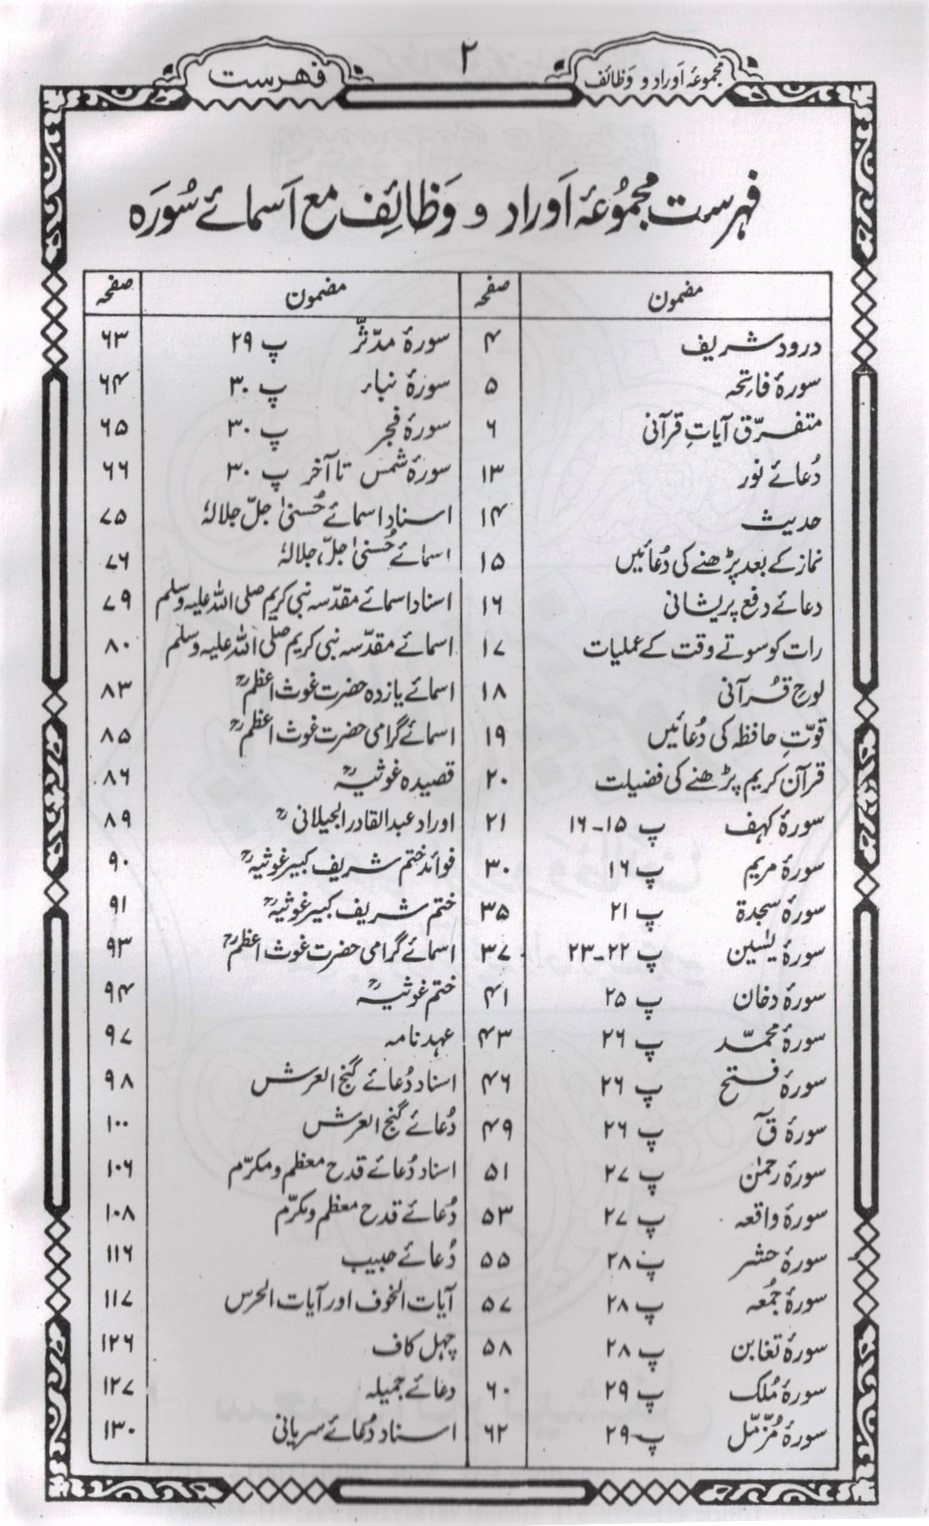 مجموعۂ اَوراد و وَظائف
۲
فہرست
فہرست مجموُعۂ اَوراد و وَظائِف مع اَسمائے سُورَہ
مضمون صفحہ
درود شریف ۴
سورۂ فاتِحہ ۵
متفرّق آیاتِ قرآنی ۶
دُعائے نور ۱۳
حدیث ۱۴
نماز کے بعد پڑھنے کی دُعائیں ۱۵
دعائے دفع پریشانی ۱۶
رات کو سوتے وقت کے عملیات ۱۷
لوحِ قُرآنی ۱۸
قوّتِ حافظہ کی دُعائیں ۱۹
قرآن کریم پڑھنے کی فضیلت ۲۰
سورۂ کہف پ ۱۵-۱۶ ۲۱
سورۂ مریم پ ۱۶ ۳۰
سورۂ سجدۃ پ ۲۱ ۳۵
سورۂ یٰسین پ ۲۲-۲۳ ۳۷
سورۂ دخان پ ۲۵ ۴۱
سورۂ محمّد پ ۲۶ ۴۳
سورۂ فتح پ ۲۶ ۴۶
سورۂ قٓ پ ۲۶ ۴۹
سورۂ رحمٰن پ ۲۷ ۵۱
سورۂ واقعہ پ ۲۷ ۵۳
سورۂ حشر پ ۲۸ ۵۵
سورۂ جمُعہ پ ۲۸ ۵۷
سورۂ تغابن پ ۲۸ ۵۸
سورۂ مُلک پ ۲۹ ۶۰
سورۂ مُزّمّل پ ۲۹ ۶۲
مضمون صفحہ
سورۂ مدّثّر پ ۲۹ ۶۳
سورۂ نباء پ ۳۰ ۶۴
سورۂ فجر پ ۳۰ ۶۵
سورۂ شمس تا آخر پ ۳۰ ۶۶
اسناد اسمائے حُسنیٰ جلّ جلالہٗ ۷۵
اسمائے حُسنیٰ جلّ جلالہٗ ۷۶
اسناد اسمائے مقدّسہ نبی کریم صلی اللہ علیہ وسلم ۷۹
اسمائے مقدّسہ نبی کریم صلی اللہ علیہ وسلم ۸۰
اسمائے یازدہ حضرت غوث اعظمؒ ۸۳
اسمائے گرامی حضرت غوث اعظمؒ ۸۵
قصیدہ غوثیہؒ ۸۶
اوراد عبدالقادر الجیلانیؒ ۸۹
فوائد ختم شریف کبیر غوثیہؒ ۹۰
ختم شریف کبیر غوثیہؒ ۹۱
اسمائے گرامی حضرت غوث اعظمؒ ۹۳
ختم غوثیہؒ ۹۴
عہد نامہ ۹۷
اسناد دُعائے گنج العرش ۹۸
دُعائے گنج العرش ۱۰۰
اسناد دُعائے قدح معظم و مکرّم ۱۰۶
دُعائے قدح معظم و مکرّم ۱۰۸
دُعائے حبیب ۱۱۶
آیات الخوف اور آیات الحرس ۱۱۷
چہل کاف ۱۲۶
دعائے جمیلہ ۱۲۷
اسناد دُعائے سریانی ۱۳۰